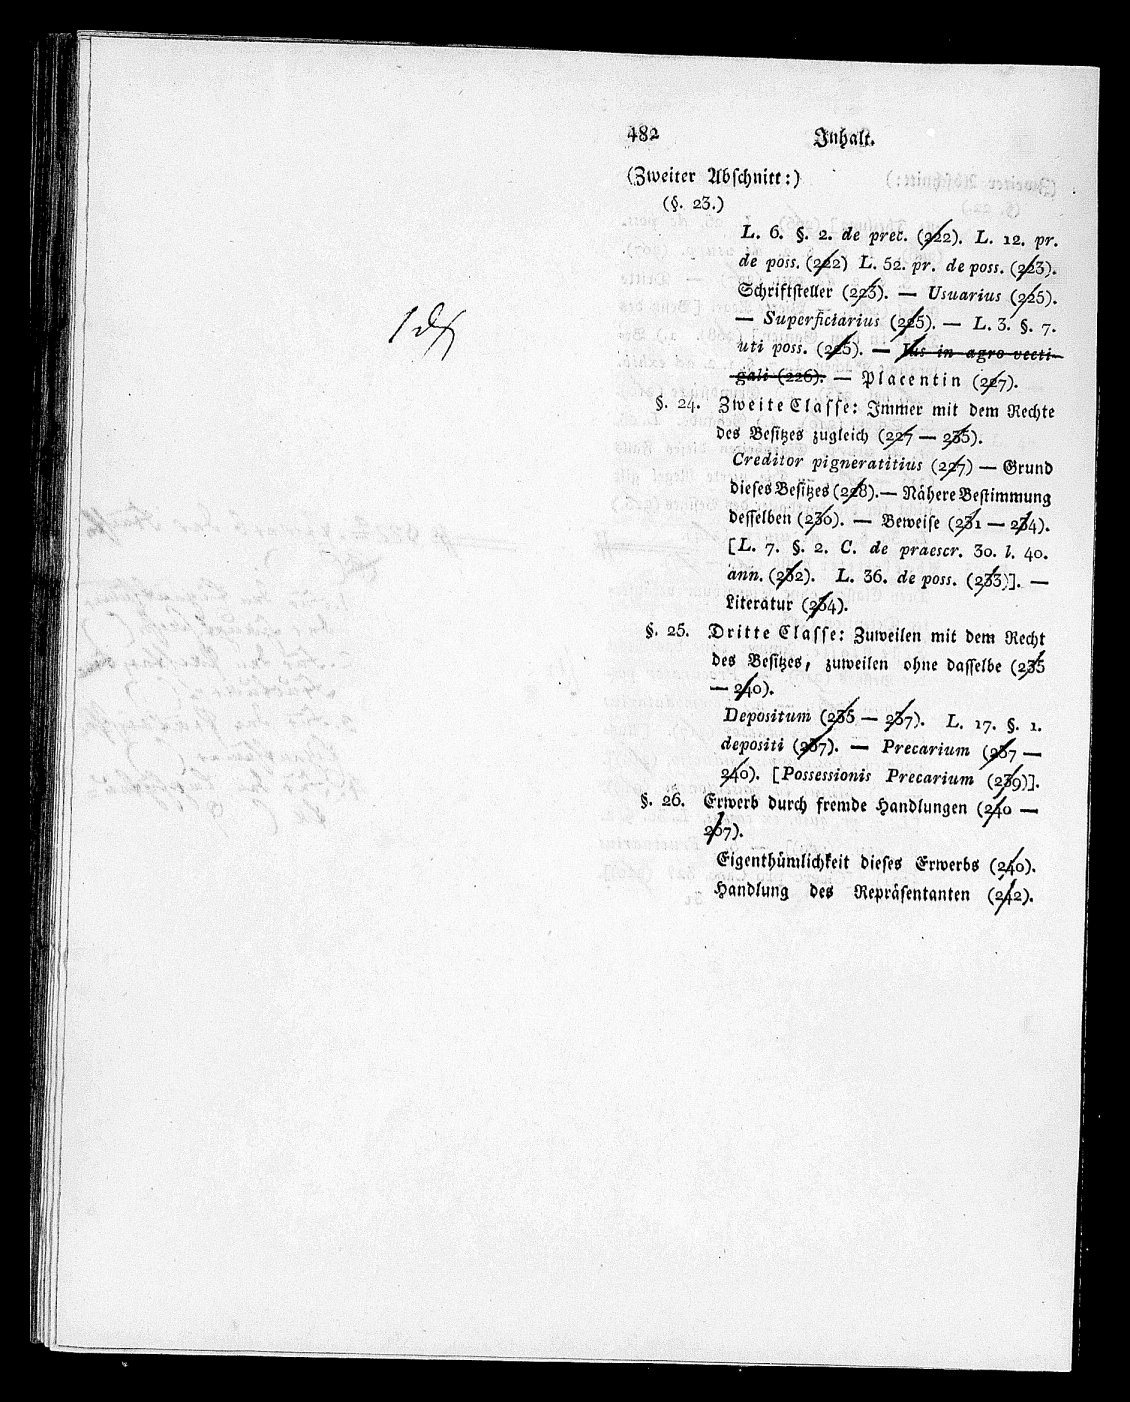 482 Inhalt.
(Zweiter Abschnitt:)
(§. 23.)
L. 6. §. 2. de prec. (222). L. 12. pr.
de poss. (222) L. 52. pr. de poss. (223).
Schriftsteller (223). — Usuarius (225).
— Superficiarius (225). — L. 3. §. 7.
uti poss. (225). — Ius in agro vecti-
gali (226). — Placentin (227).
§. 24. Zweite Classe: Immer mit dem Rechte
des Besitzes zugleich (227 — 235).
Creditor pigneratitius (227) — Grund
dieses Besitzes (228). — Nähere Bestimmung
desselben (230). — Beweise (231 — 234).
[L. 7. §. 2. C. de praescr. 30. l. 40.
ann. (232). L. 36. de poss. (233)]. —
Literatur (234).
§. 25. Dritte Classe: Zuweilen mit dem Recht
des Besitzes, zuweilen ohne dasselbe (235
— 240).
Depositum (235 — 237). L. 17. §. 1.
depositi (237). — Precarium (237 —
240). [Possessionis Precarium (239)].
§. 26. Erwerb durch fremde Handlungen (240 —
267).
Eigenthümlichkeit dieses Erwerbs (240).
Handlung des Repräsentanten (242).